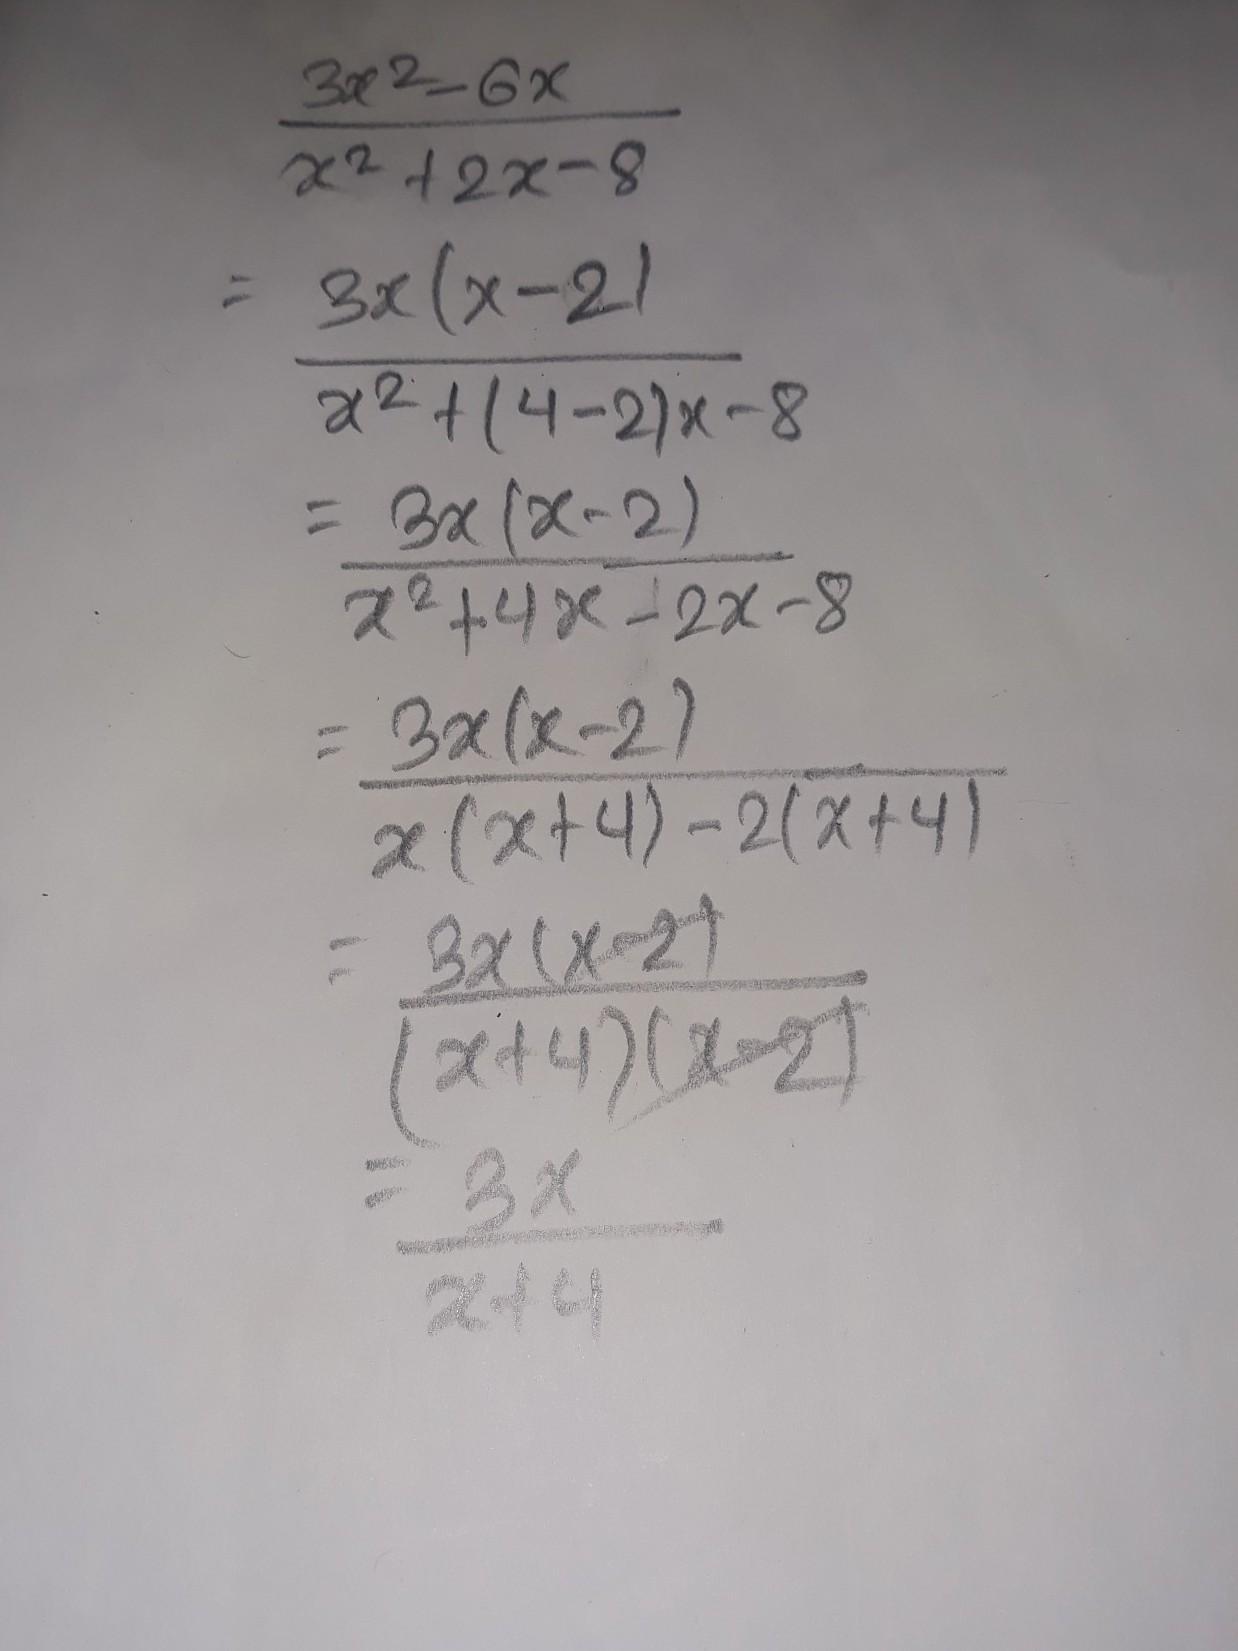 3x² - 6x
x² + 2x - 8
= 3x(x-2)
x² + (4-2)x - 8
= 3x(x-2)
x² + 4x - 2x - 8
= 3x(x-2)
x(x+4) - 2(x+4)
= 3x(x-2)
(x+4)(x-2)
= 3x
x+4